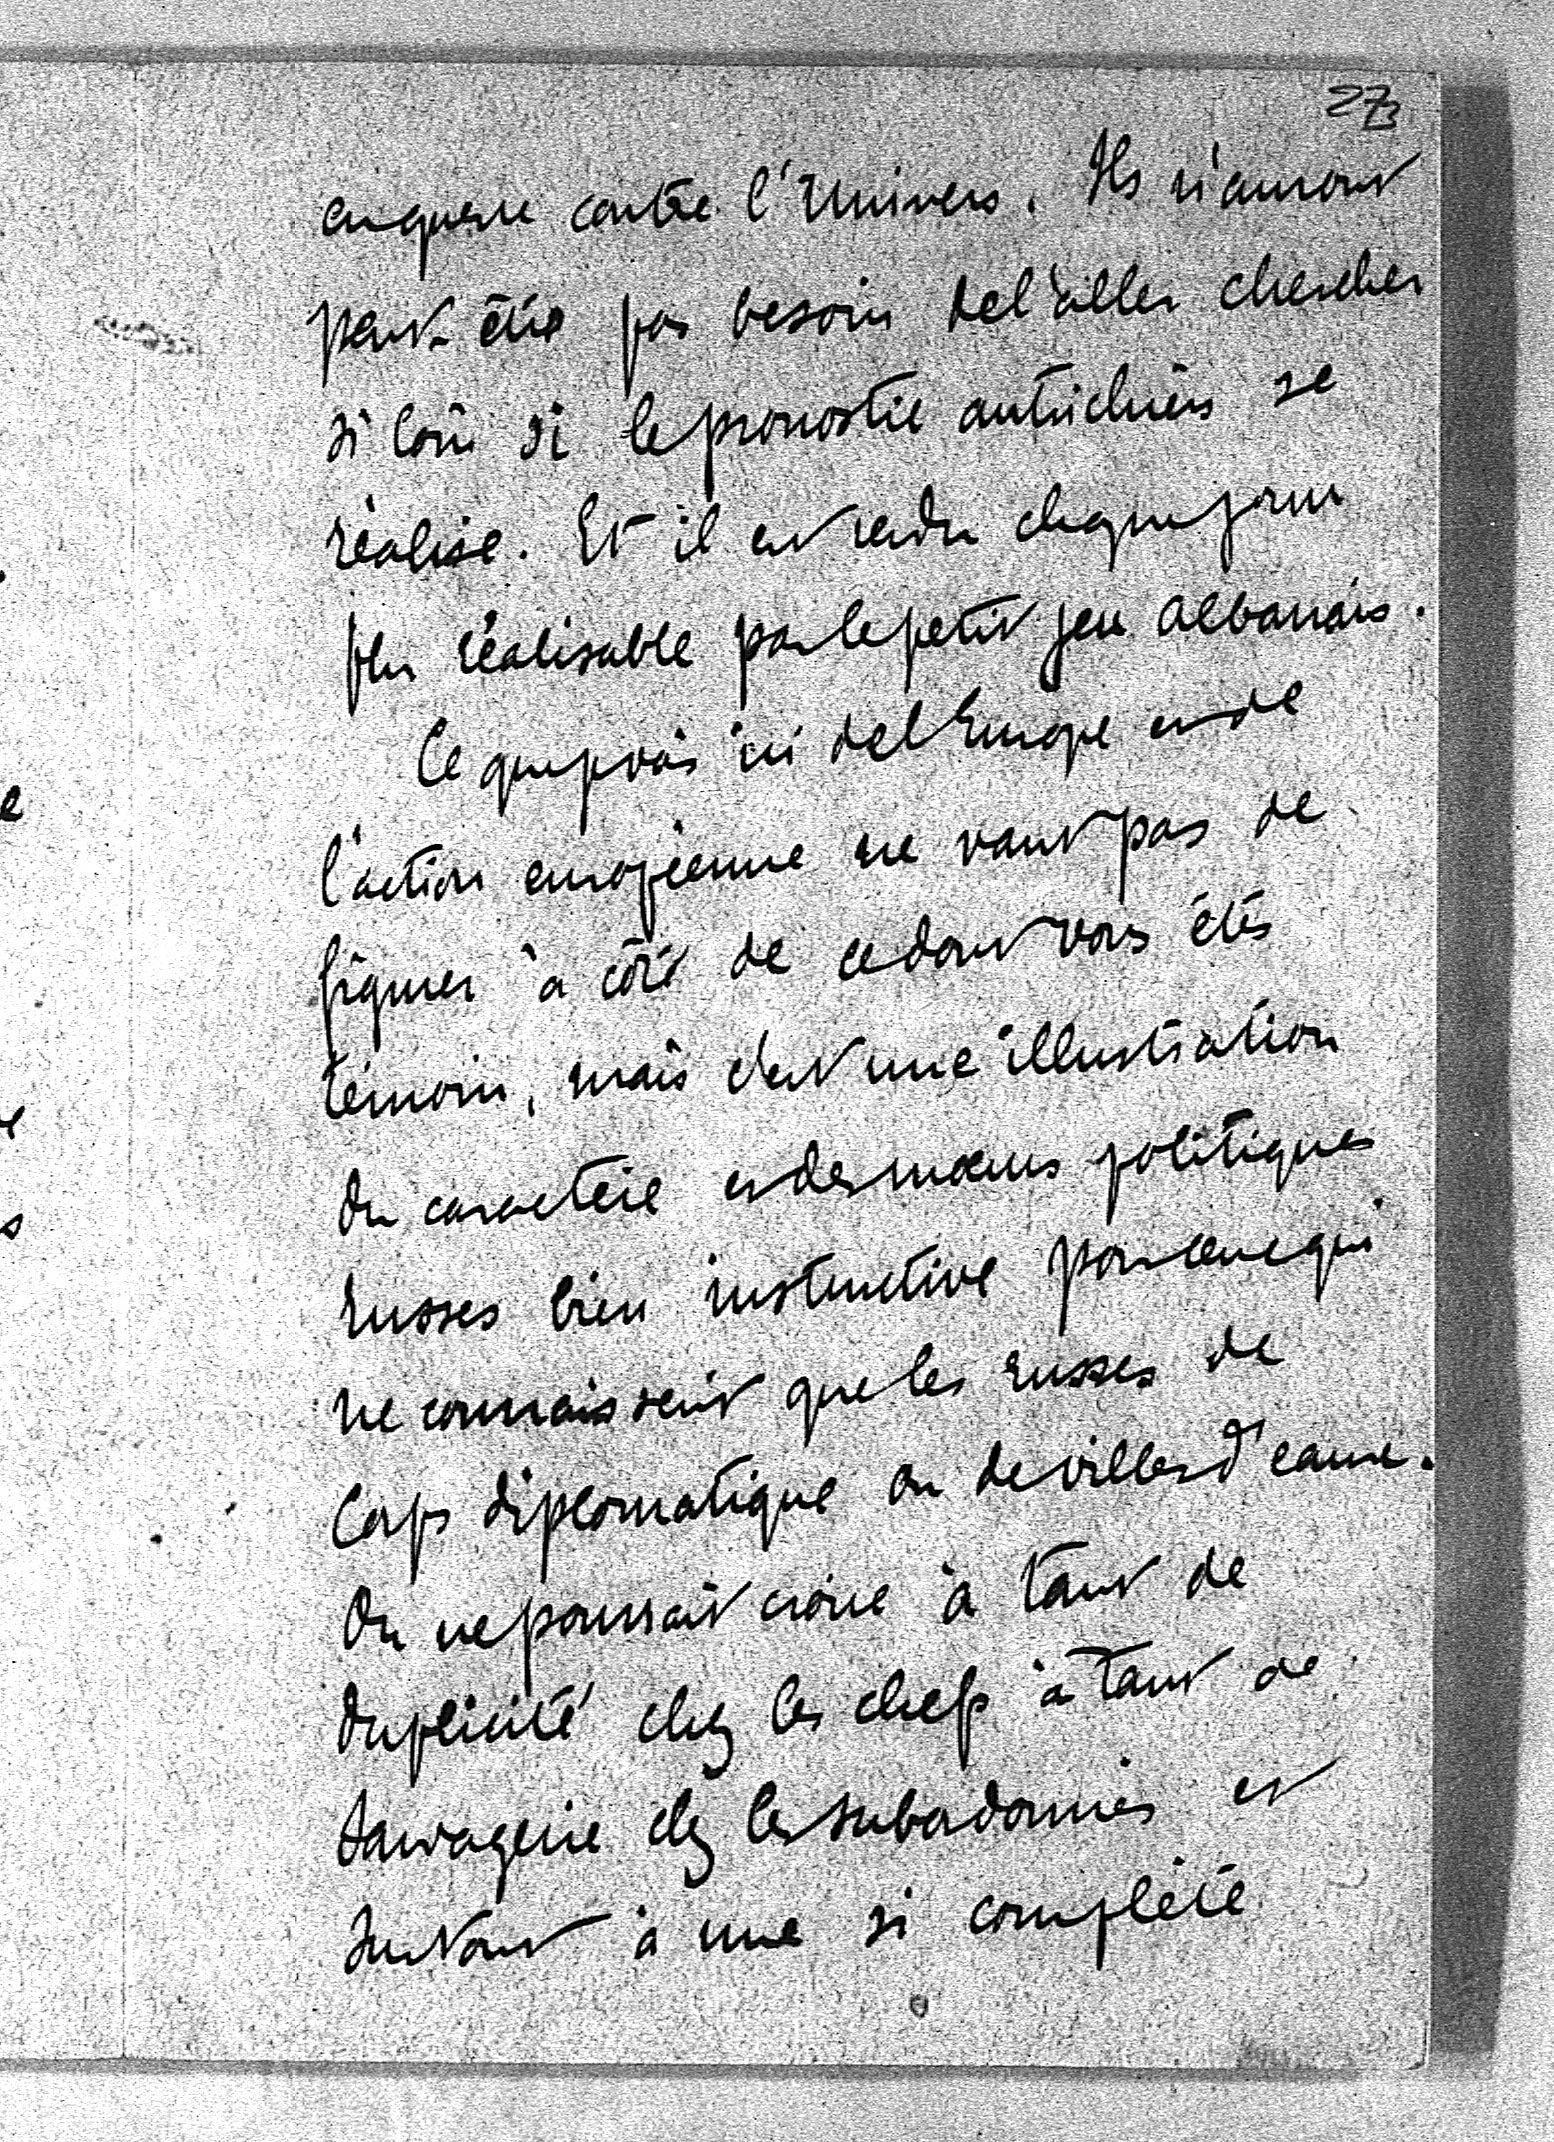 273
en guerre contre l'Univers. Ils n'auront
peut-être pas besoin de l'aller chercher
si loin si le pronostic autrichien se
réalise. Et il est rendu chaque jour
plus réalisable par le petit jeu albanais.
Ce que je vois ici de l'Europe et de
l'action européenne ne vaut pas de
figurer à côté de ce dont vous étés
témoin, mais c'est une illustration
du caractère et des mœurs politiques
russes bien instructive pour ceux qui
ne connaissent que les russes de
Corps diplomatique ou de villes d'eaux.
On ne pourrait croire à tant de
duplicité chez les chefs à tant de
sauvagerie chez les subordonnés et
surtout à une si complète